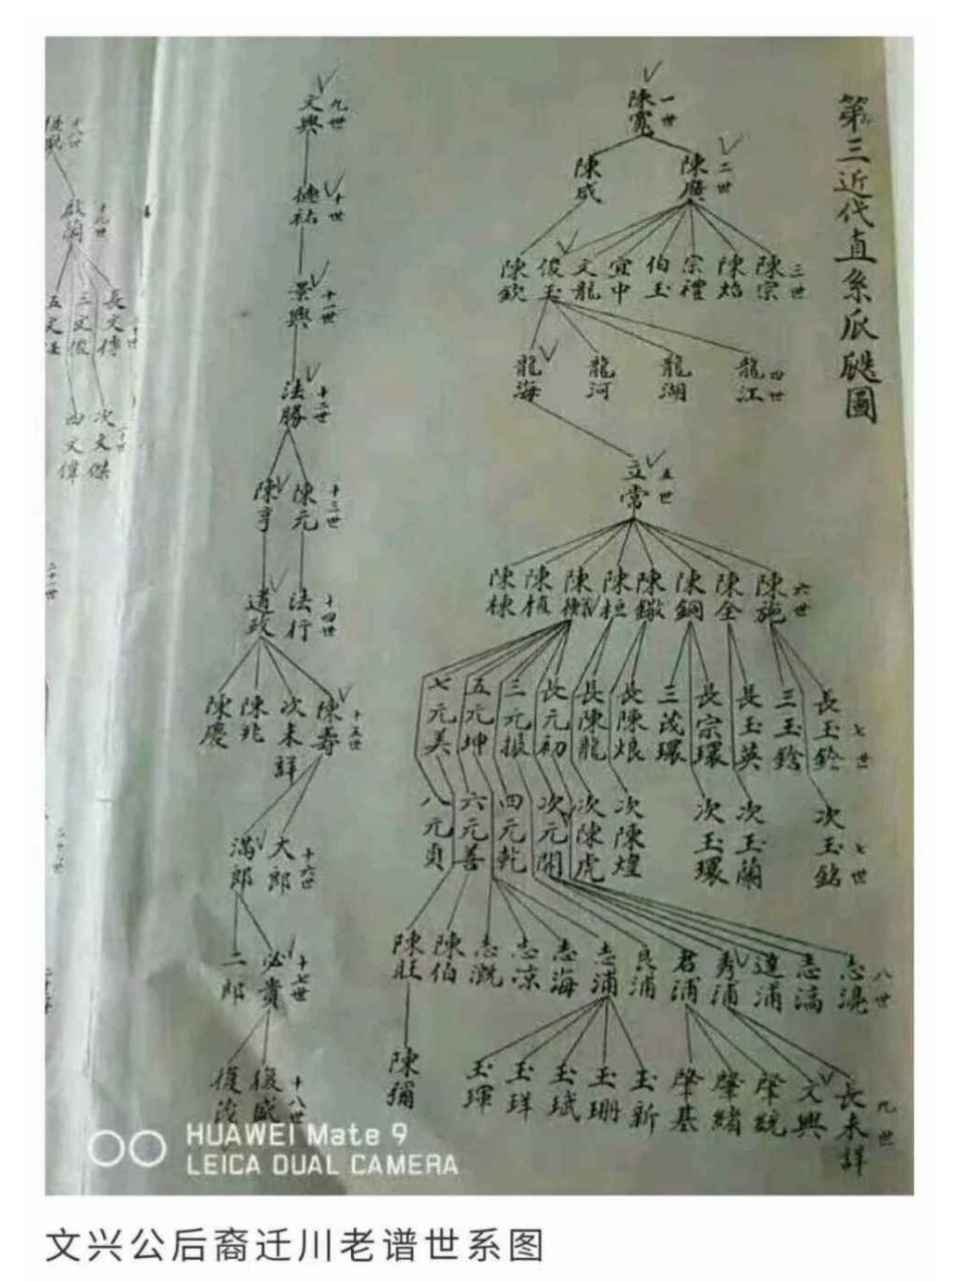 第三近代直系瓜瓞圖
一世
陳寬
二世
陳廣
陳咸
三世
陳宗
陳焰
宗禮
伯玉
宜中
文龍
俊玉
陳欽
四世
龍江
龍湖
龍河
龍海
五世
立常
六世
陳施
陳全
陳鋼
陳鏾
陳桓
陳植
陳棟
七世
長玉鈴
三玉鎗
長玉英
長宗環
三茂環
長陳烺
長陳龍
長元初
三元振
五元坤
七元美
七世
次玉銘
次玉蘭
次玉環
次陳煌
次陳虎
次元開
四元乾
六元善
八元貞
八世
志滈
達浦
秀浦
君浦
良浦
志浦
志海
志凉
志溉
陳伯
陳旺
九世
長未詳
文興
肇統
肇緒
肇基
玉新
玉珊
玉珷
玉玤
玉琿
陳獼
九世
文興
十世
德祐
十一世
景興
十二世
法勝
十三世
陳元
陳亨
十四世
法行
道政
十五世
陳壽
次未詳
陳兆
陳慶
十六世
大郎
滿郎
十七世
必貴
二郎
十八世
復盛
復茂
十九世
啟蘭
長文傳
三文俊
次文傑
四文偉
HUAWEI Mate 9
LEICA DUAL CAMERA
文兴公后裔迁川老谱世系图